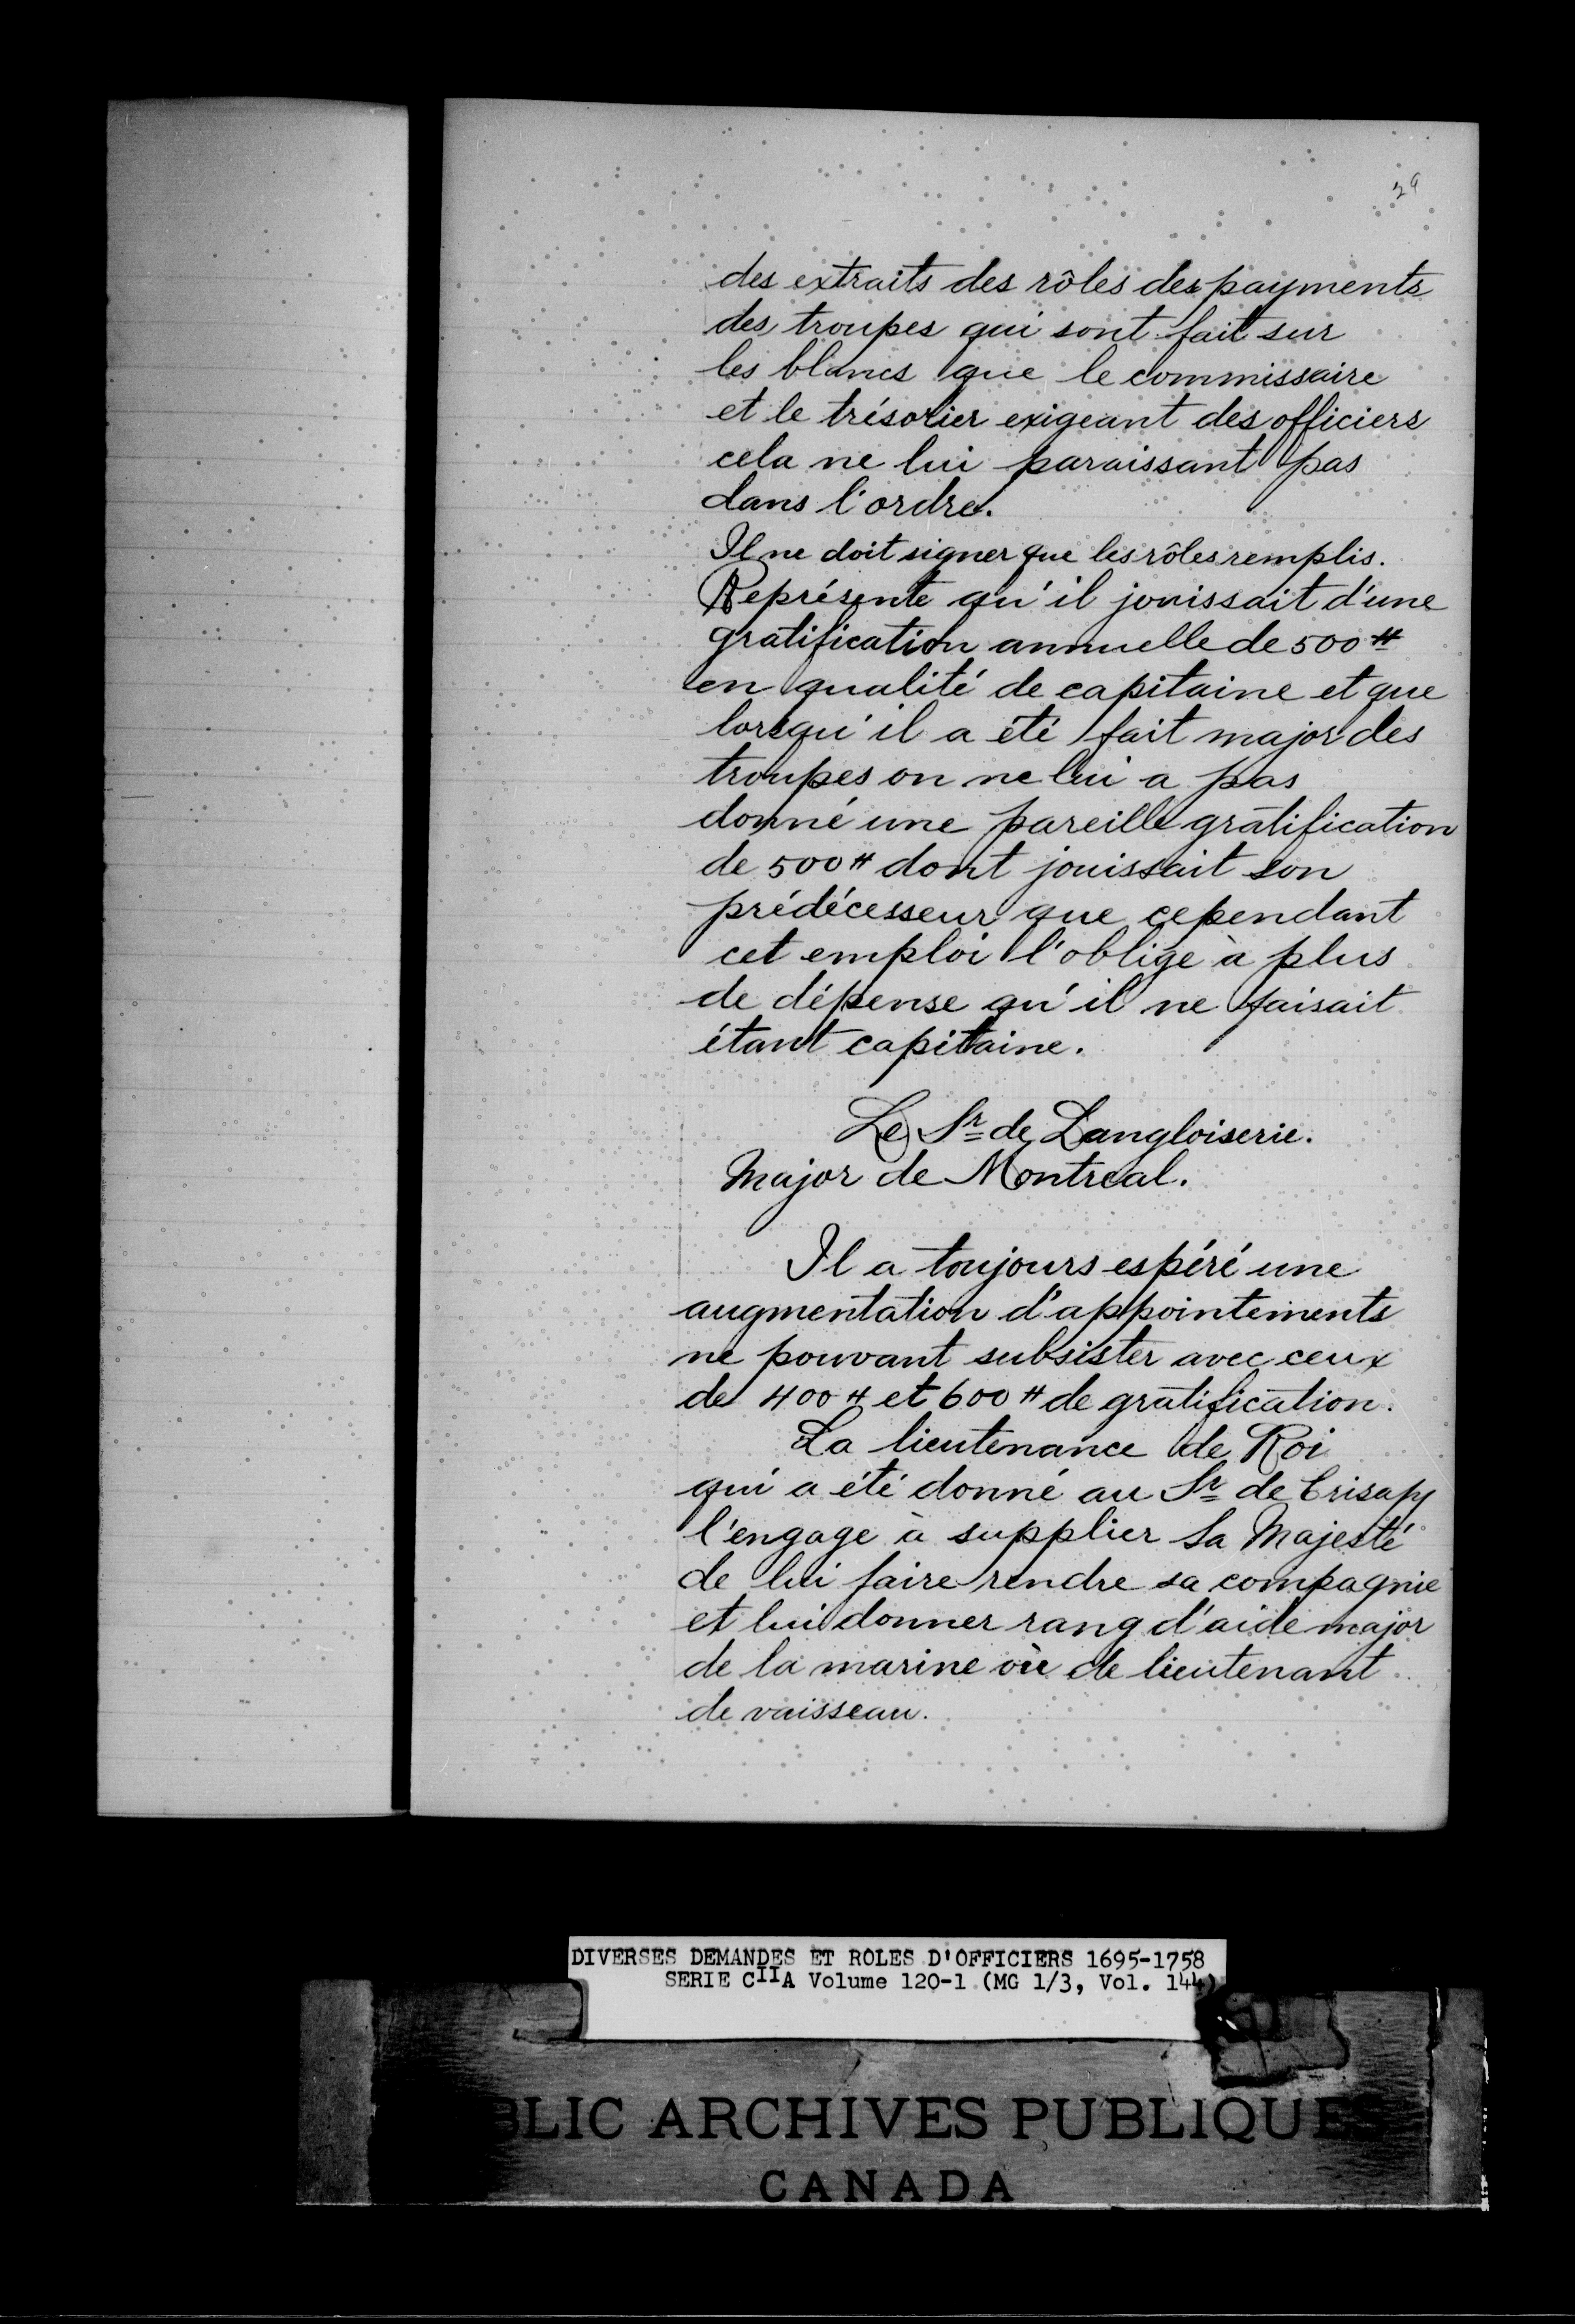 29
des extraits des rôles des payments
des troupes qui sont fait sur
les blancs que le commissaire
et le trésorier exigeant des officiers
cela ne lui paraissant pas
dans l'ordre.
Il ne doit signer que les rôles remplis.
Représente qu'il jouissait d'une
gratification annuelle de 500 ₶
en qualité de capitaine et que
lorsqu'il a été fait major des
troupes on ne lui a pas
donné une pareille gratification
de 500 ₶ dont jouissait son
prédécesseur que cependant
cet emploi l'oblige à plus
de dépense qu'il ne faisait
étant capitaine.
Le Sr de Langloiserie.
Major de Montreal.
Il a toujours espéré une
augmentation d'appointements
ne pouvant subsister avec ceux
de 400 ₶ et 600 ₶ de gratification.
La lieutenance de Roi
qui a été donné au Sr de Crisapy
l'engage à supplier Sa Majesté
de lui faire rendre sa compagnie
et lui donner rang d'aide major
de la marine où de lieutenant
de vaisseau.
DIVERSES DEMANDES ET ROLES D'OFFICIERS 1695-1758
SERIE CIIA Volume 120-1 (MG 1/3, Vol. 144)
BLIC ARCHIVES PUBLIQUES
CANADA